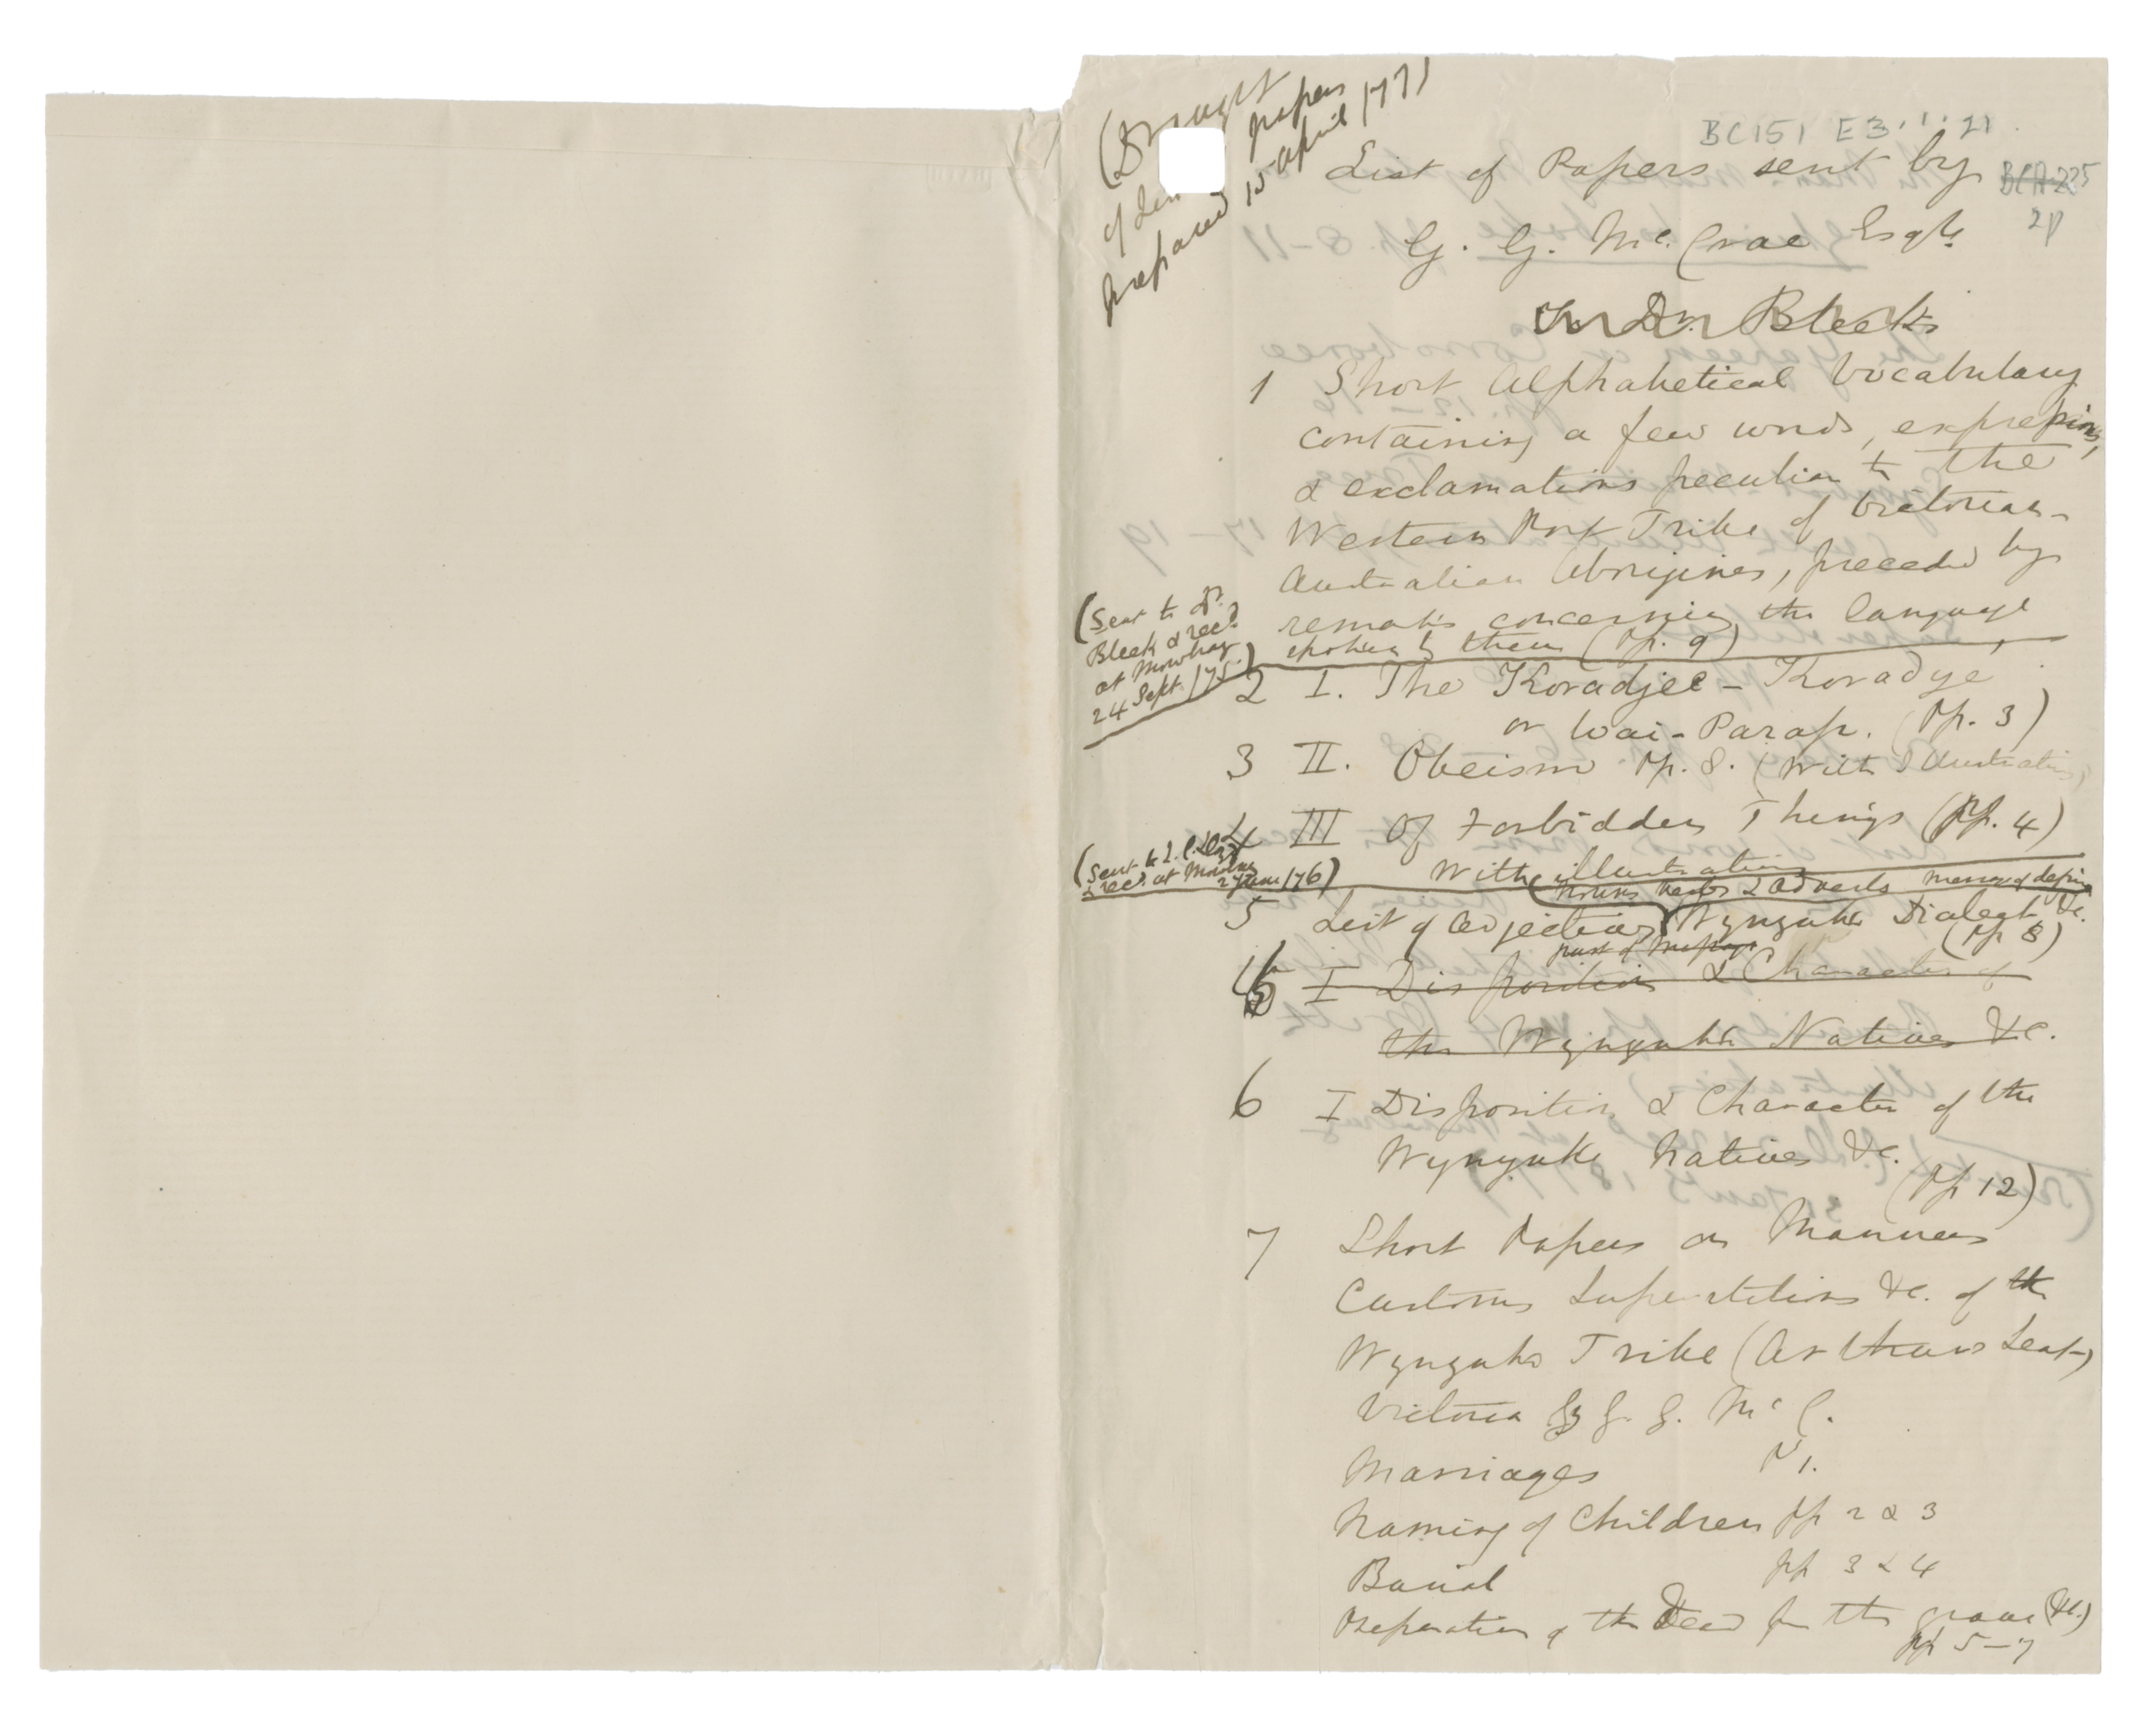 (Draught
of papers
prepared 15 April /77)
BC151 E3.1.21
BCA 225
2p
List of Papers sent by
G. G. Mc. Crae Esqre
To Dr. Bleek
1 Short Alphabetical Vocabulary
containing a few words, expressions,
& exclamations peculiar to the
Western Port Tribe of Victorian-
Australian Aborigines, preceded by
remarks concerning the language
spoken by them (pp. 9)
(Sent to Dr.
Bleek & recd.
at Mowbray
24 Sept. /75.)
2 I. The Koradjee - Koradye
or Wai-Parap. (pp. 3)
3 II. Obeism pp. 8. (With Illustrations)
4 III Of Forbidden Things (pp. 4)
With illustration
(Sent to L. C. Lloyd
& recd. at Mowbray
27 June /76)
nouns verbs & adverbs
5 List of adjectives Wynyuke Dialect &c.
(pp 8)
part of
5 I Disposition & Character of
the Wynyuke Natives &c.
6 I Disposition & Character of the
Wynyuke Natives &c.
(pp 12)
7 Short Papers on Manners
Customs Superstitions &c. of the
Wynyuke Tribe (Arthurs Seat)
Victoria by G. G. Mc C.
Marriages p 1.
Naming of Children pp 2 & 3
Burial pp 3 & 4
Preparation of the Dead for the grave (&c.)
pp 5-7